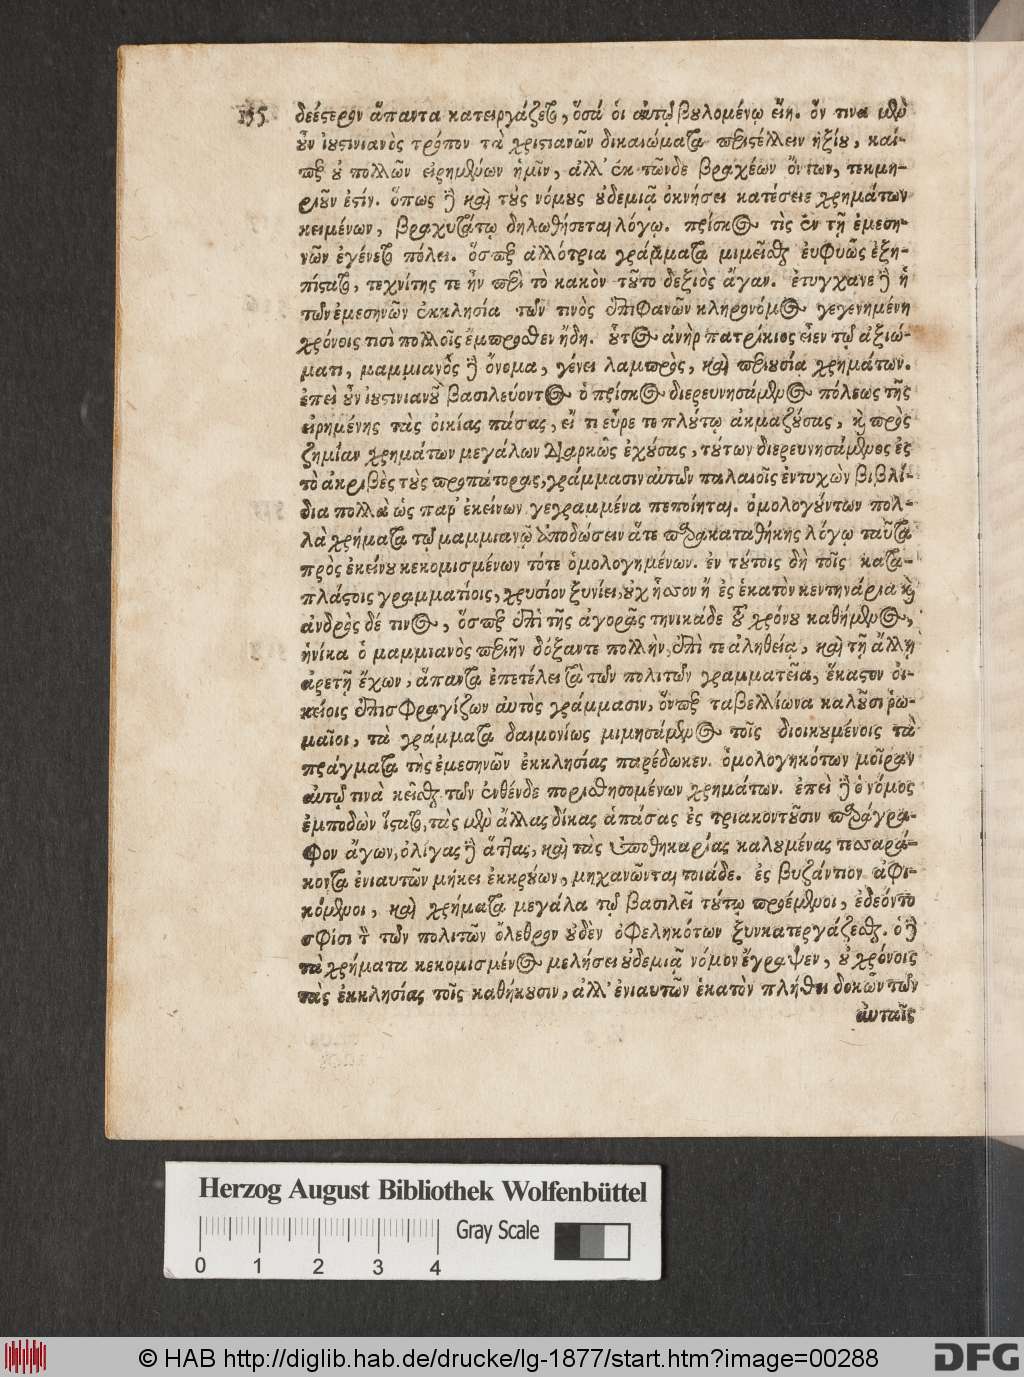 δεέστερον ἅπαντα κατειργάζετο, ὅσά οἱ αὐτῷ βουλομένῳ εἴη. ὅν τινα μὲν
οὖν ἰουστινιανὸς τρόπον τὰ χριστιανῶν δικαιώματα περιστέλλειν ἠξίου, καί-
περ οὐ πολλῶν εἰρημένων ἡμῖν, ἀλλ' ἐκ τῶνδε βραχέων ὄντων, τεκμη-
ριοῦν ἐστίν. ὅπως δὲ καὶ τοὺς νόμους οὐδεμιᾷ ὀκνήσει κατέσειε χρημάτων
κειμένων, βραχυτάτῳ δηλωθήσεται λόγῳ. πρίσκος τὶς ἐν τῇ ἐμεση-
νῶν ἐγένετο πόλει. ὅσπερ ἀλλότρια γράμματα μιμεῖσθαι εὐφυῶς ἐξη-
πίστατο, τεχνίτης τε ἦν περὶ τὸ κακὸν τοῦτο δεξιὸς ἄγαν. ἐτύγχανε δὲ ἡ
τῶν ἐμεσηνῶν ἐκκλησία τῶν τινὸς ἐπιφανῶν κληρονόμος γεγενημένη
χρόνοις τισὶ πολλοῖς ἔμπροσθεν ἤδη. οὗτος ἀνὴρ πατρίκιος εἶεν τῷ ἀξιώ-
ματι, μαμμιανὸς δὲ ὄνομα, γένει λαμπρὸς, καὶ περιουσίᾳ χρημάτων.
ἐπεὶ οὖν ἰουστινιανοῦ βασιλεύοντος ὁ πρίσκος διερευνησάμενος πόλεως τῆς
εἰρημένης τὰς οἰκίας πάσας, εἴ τι εὗρε τε πλούτῳ ἀκμαζούσας, καὶ πρὸς
ζημίαν χρημάτων μεγάλων διαρκῶς ἐχούσας, τούτων διερευνησάμενος ἐς
τὸ ἀκριβὲς τοὺς προπάτορας, γράμμασιν αὐτῶν παλαιοῖς ἐντυχὼν βιβλί-
δια πολλὰ ὡς παρ' ἐκείνων γεγραμμένα πεποίηται. ὁμολογούντων πολ-
λὰ χρήματα τῷ μαμμιανῷ ἀποδώσειν ἅτε παρακαταθήκης λόγῳ ταῦτα
πρὸς ἐκείνου κεκομισμένων τότε ὁμολογημένων. ἐν τούτοις δὴ τοῖς κατα-
πλάστοις γραμματίοις, χρυσίον ξυνίει, οὐχ ἧσσον ἢ ἐς ἑκατὸν κεντηνάρια καὶ
ἀνδρὸς δέ τινος, ὅσπερ ἐπὶ τῆς ἀγορᾶς τηνικάδε τοῦ χρόνου καθήμενος,
ἡνίκα ὁ μαμμιανὸς περιῆν δόξαντε πολλὴν, ἐπὶ τε ἀληθείᾳ, καὶ τῇ ἄλλῃ
ἀρετῇ ἔχων, ἅπαντα ἐπετέλει τὰ τῶν πολιτῶν γραμματεῖα, ἕκαστον οἰ-
κείοις ἐπισφραγίζων αὐτὸς γράμμασιν, ὅνπερ ταβελλίωνα καλοῦσι ῥω-
μαῖοι, τὰ γράμματα δαιμονίως μιμησάμενος τοῖς διοικουμένοις τὰ
πράγματα τῆς ἐμεσηνῶν ἐκκλησίας παρέδωκεν. ὁμολογηκότων μοῖραν
αὐτῷ τινὰ κεῖσθαι τῶν ἐνθένδε πορισθησομένων χρημάτων. ἐπεὶ δὲ ὁ νόμος
ἐμποδὼν ἵστατο, τὰς μὲν ἄλλας δίκας ἁπάσας ἐς τριακοντοῦσιν παράγρα-
φον ἄγων, ὀλίγας δὲ ἅττας, καὶ τὰς ὑποθηκαρίας καλουμένας τεσσαρά-
κοντα ἐνιαυτῶν μήκει ἐκκρούων, μηχανῶνται τοιάδε. ἐς βυζάντιον ἀφι-
κόμενοι, καὶ χρήματα μεγάλα τῷ βασιλεῖ τούτῳ προέμενοι, ἐδέοντο
σφίσι τὸν τῶν πολιτῶν ὄλεθρον οὐδὲν ὀφεληκότων ξυνκατεργάζεσθαι. ὁ δὲ
τὰ χρήματα κεκομισμένος μελήσει οὐδεμιᾷ νόμον ἔγραψεν, οὐ χρόνοις
τὰς ἐκκλησίας τοῖς καθήκουσιν, ἀλλ' ἐνιαυτῶν ἑκατὸν πλήθει δοκῶν τῶν
αὐταῖς
Herzog August Bibliothek Wolfenbüttel
Gray Scale
0 1 2 3 4
© HAB http://diglib.hab.de/drucke/lg-1877/start.htm?image=00288
DFG